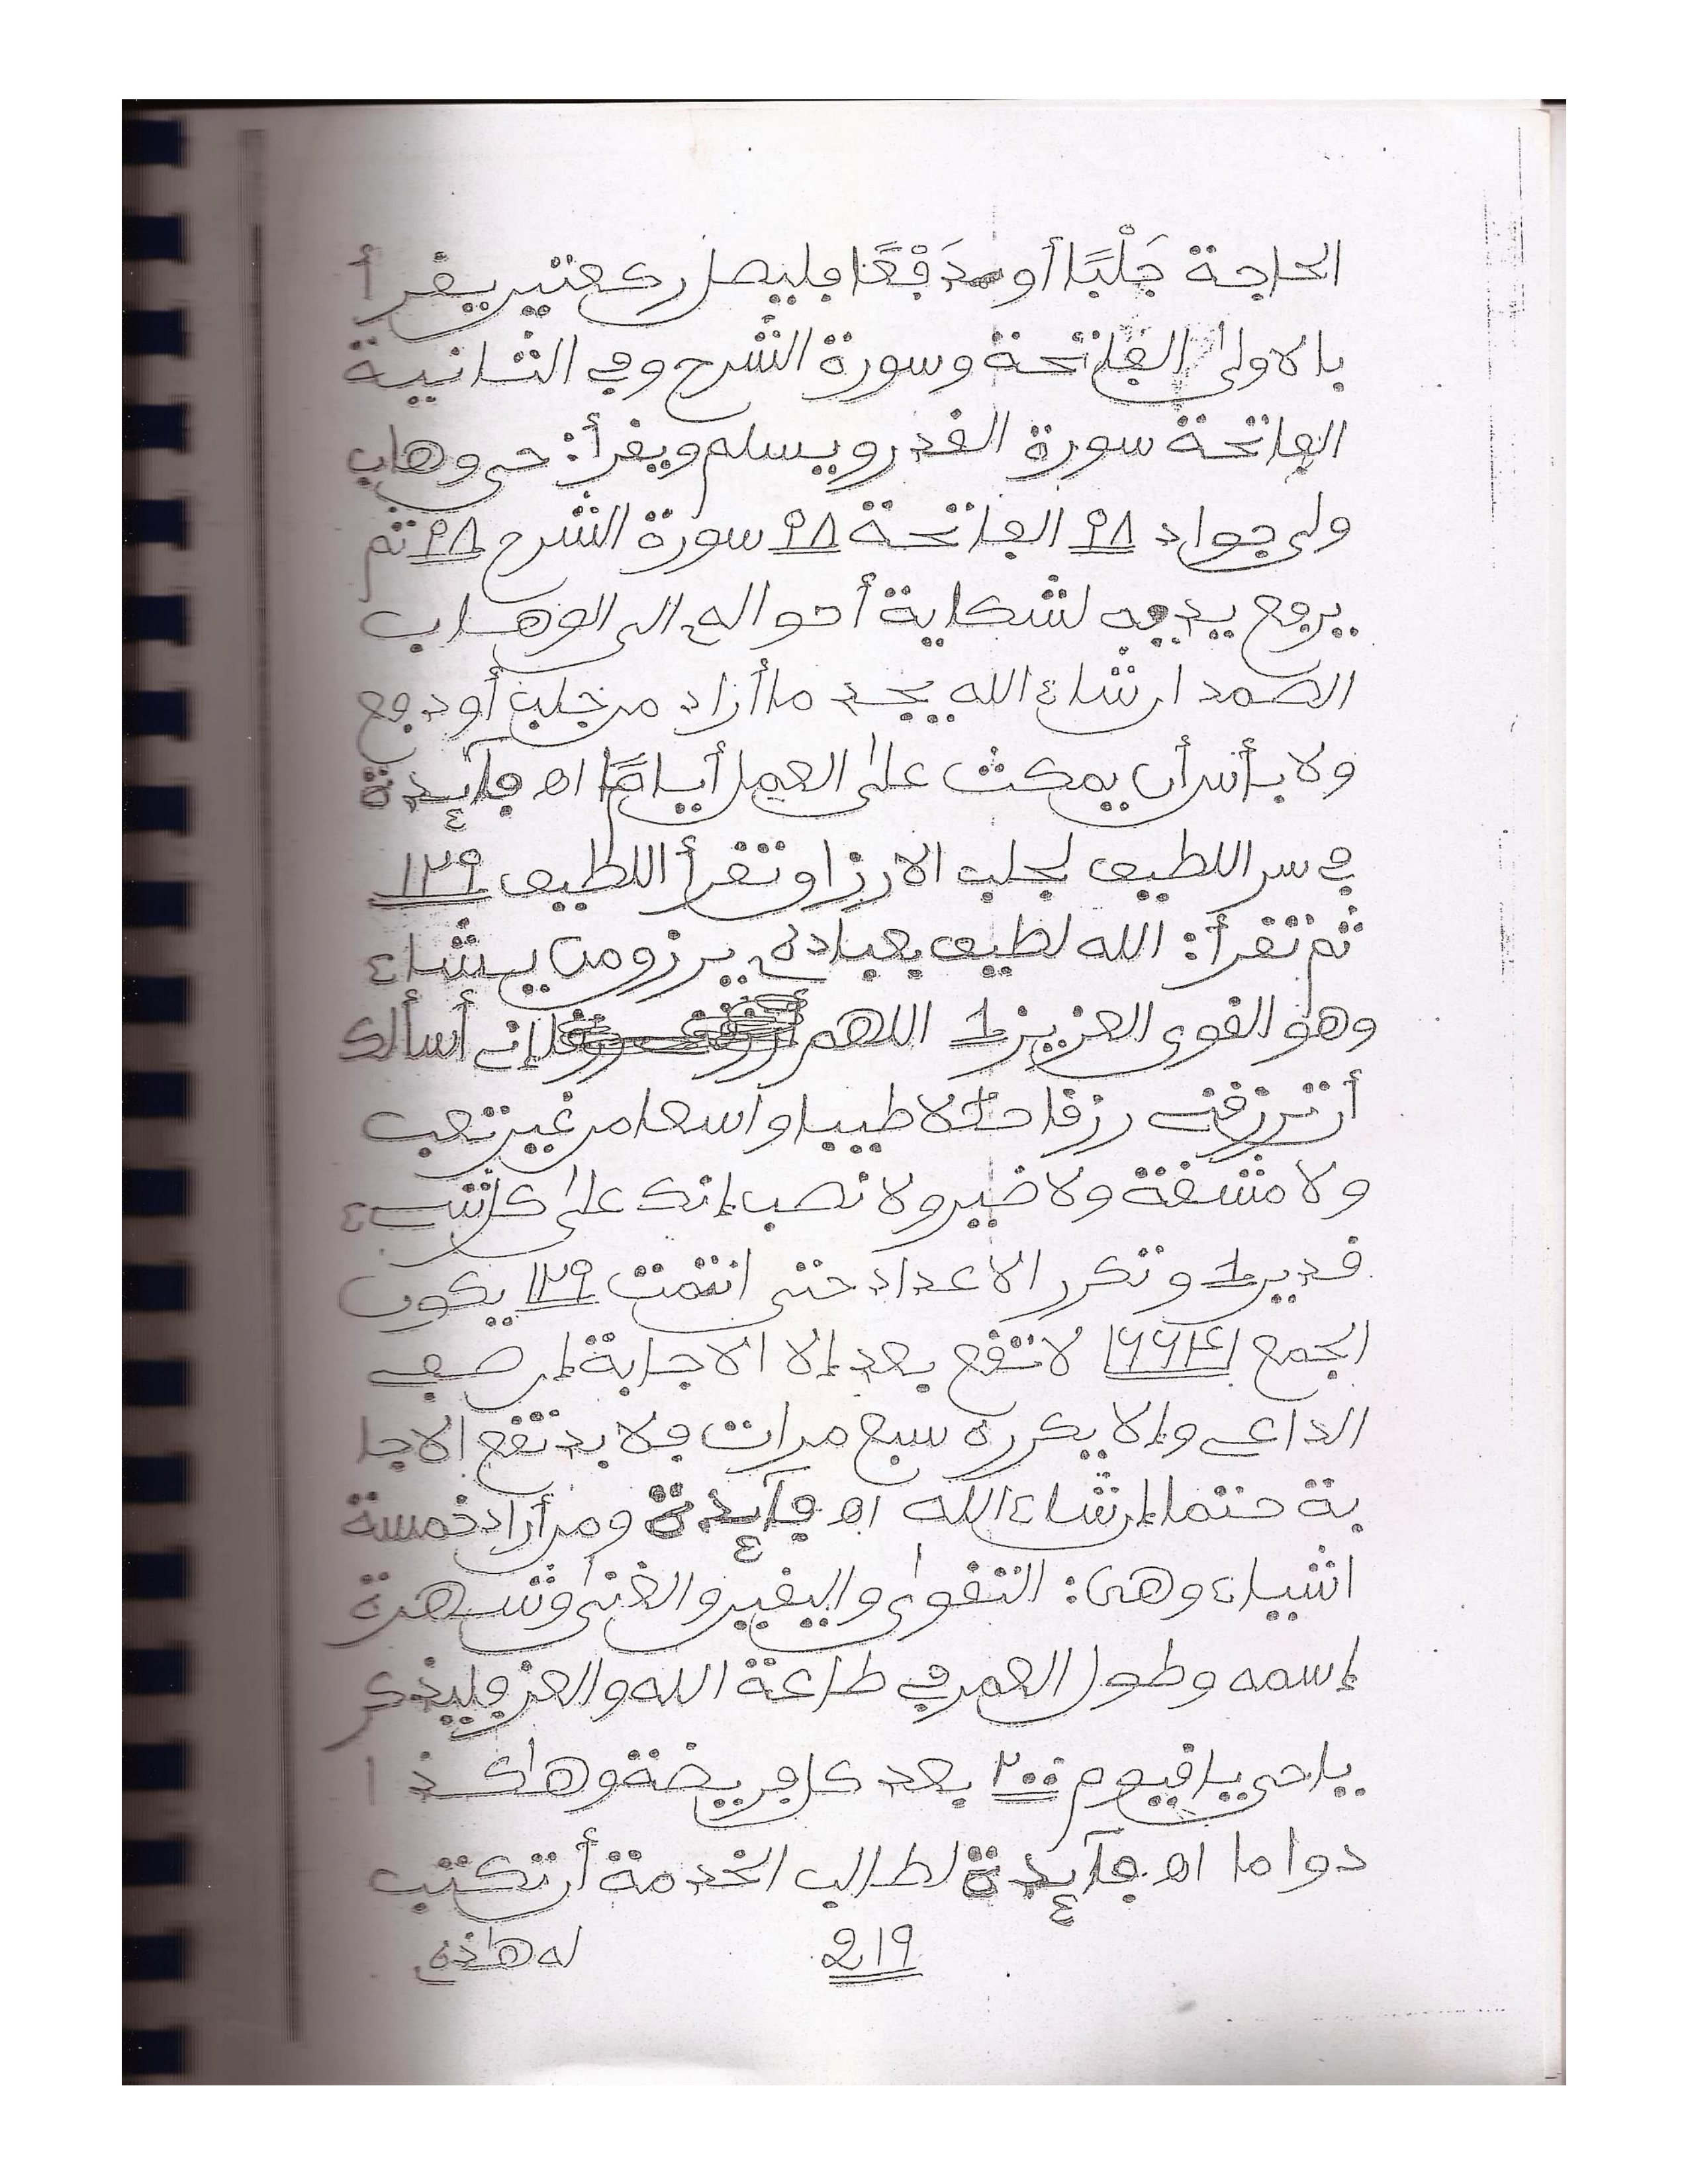 الحاجة جَلْبًا أو دَفْعًا فليصل ركعتين يقرأ
بالاولى الفاتحة وسورة الشرح وفي الثانية
الفاتحة سورة القدر ويسلم ويقرأ: حي وهاب
ولي جواد ٩٨ الفاتحة ٩٨ سورة الشرح ٩٨ ثم
يرفع يديه لشكاية أحواله الى الوهاب
الصمد ان شاء الله يجد ما أراد من جلب أو دفع
ولا بأس أن يمكث على العمل أيامًا اه فآيدة
في سر اللطيف لجلب الارزاق تقرأ اللطيف ١٢٩
ثم تقرأ: الله لطيف بعباده يرزق من يشاء
وهو القوي العزيز 1 اللهم إني أسألك
أن ترزقني رزقا حلالا طيبا واسعا من غير تعب
ولا مشقة ولا ضير ولا نصب إنك على كل شيء
قدير 1 وتكرر الاعداد حتى انتمت ١٢٩ يكون
الجمع ١٦٦٤١ لا تقع بعد إلا الاجابة إن صفى
الداعي وإلا يكرره سبع مرات فلا بد تقع الاجا
بة حتما إن شاء الله اه فآيدة ومن أراد خمسة
اشياء وهي: التقوى واليقين والغنى وشهرة
إسمه وطول العمر في طاعة الله والعز فليذكر
يا حي يا قيوم ٢٠٠ بعد كل فريضة وهاكذا
دواما اه فآيدة لطالب الخدمة أن تكتب
219 له هاذه